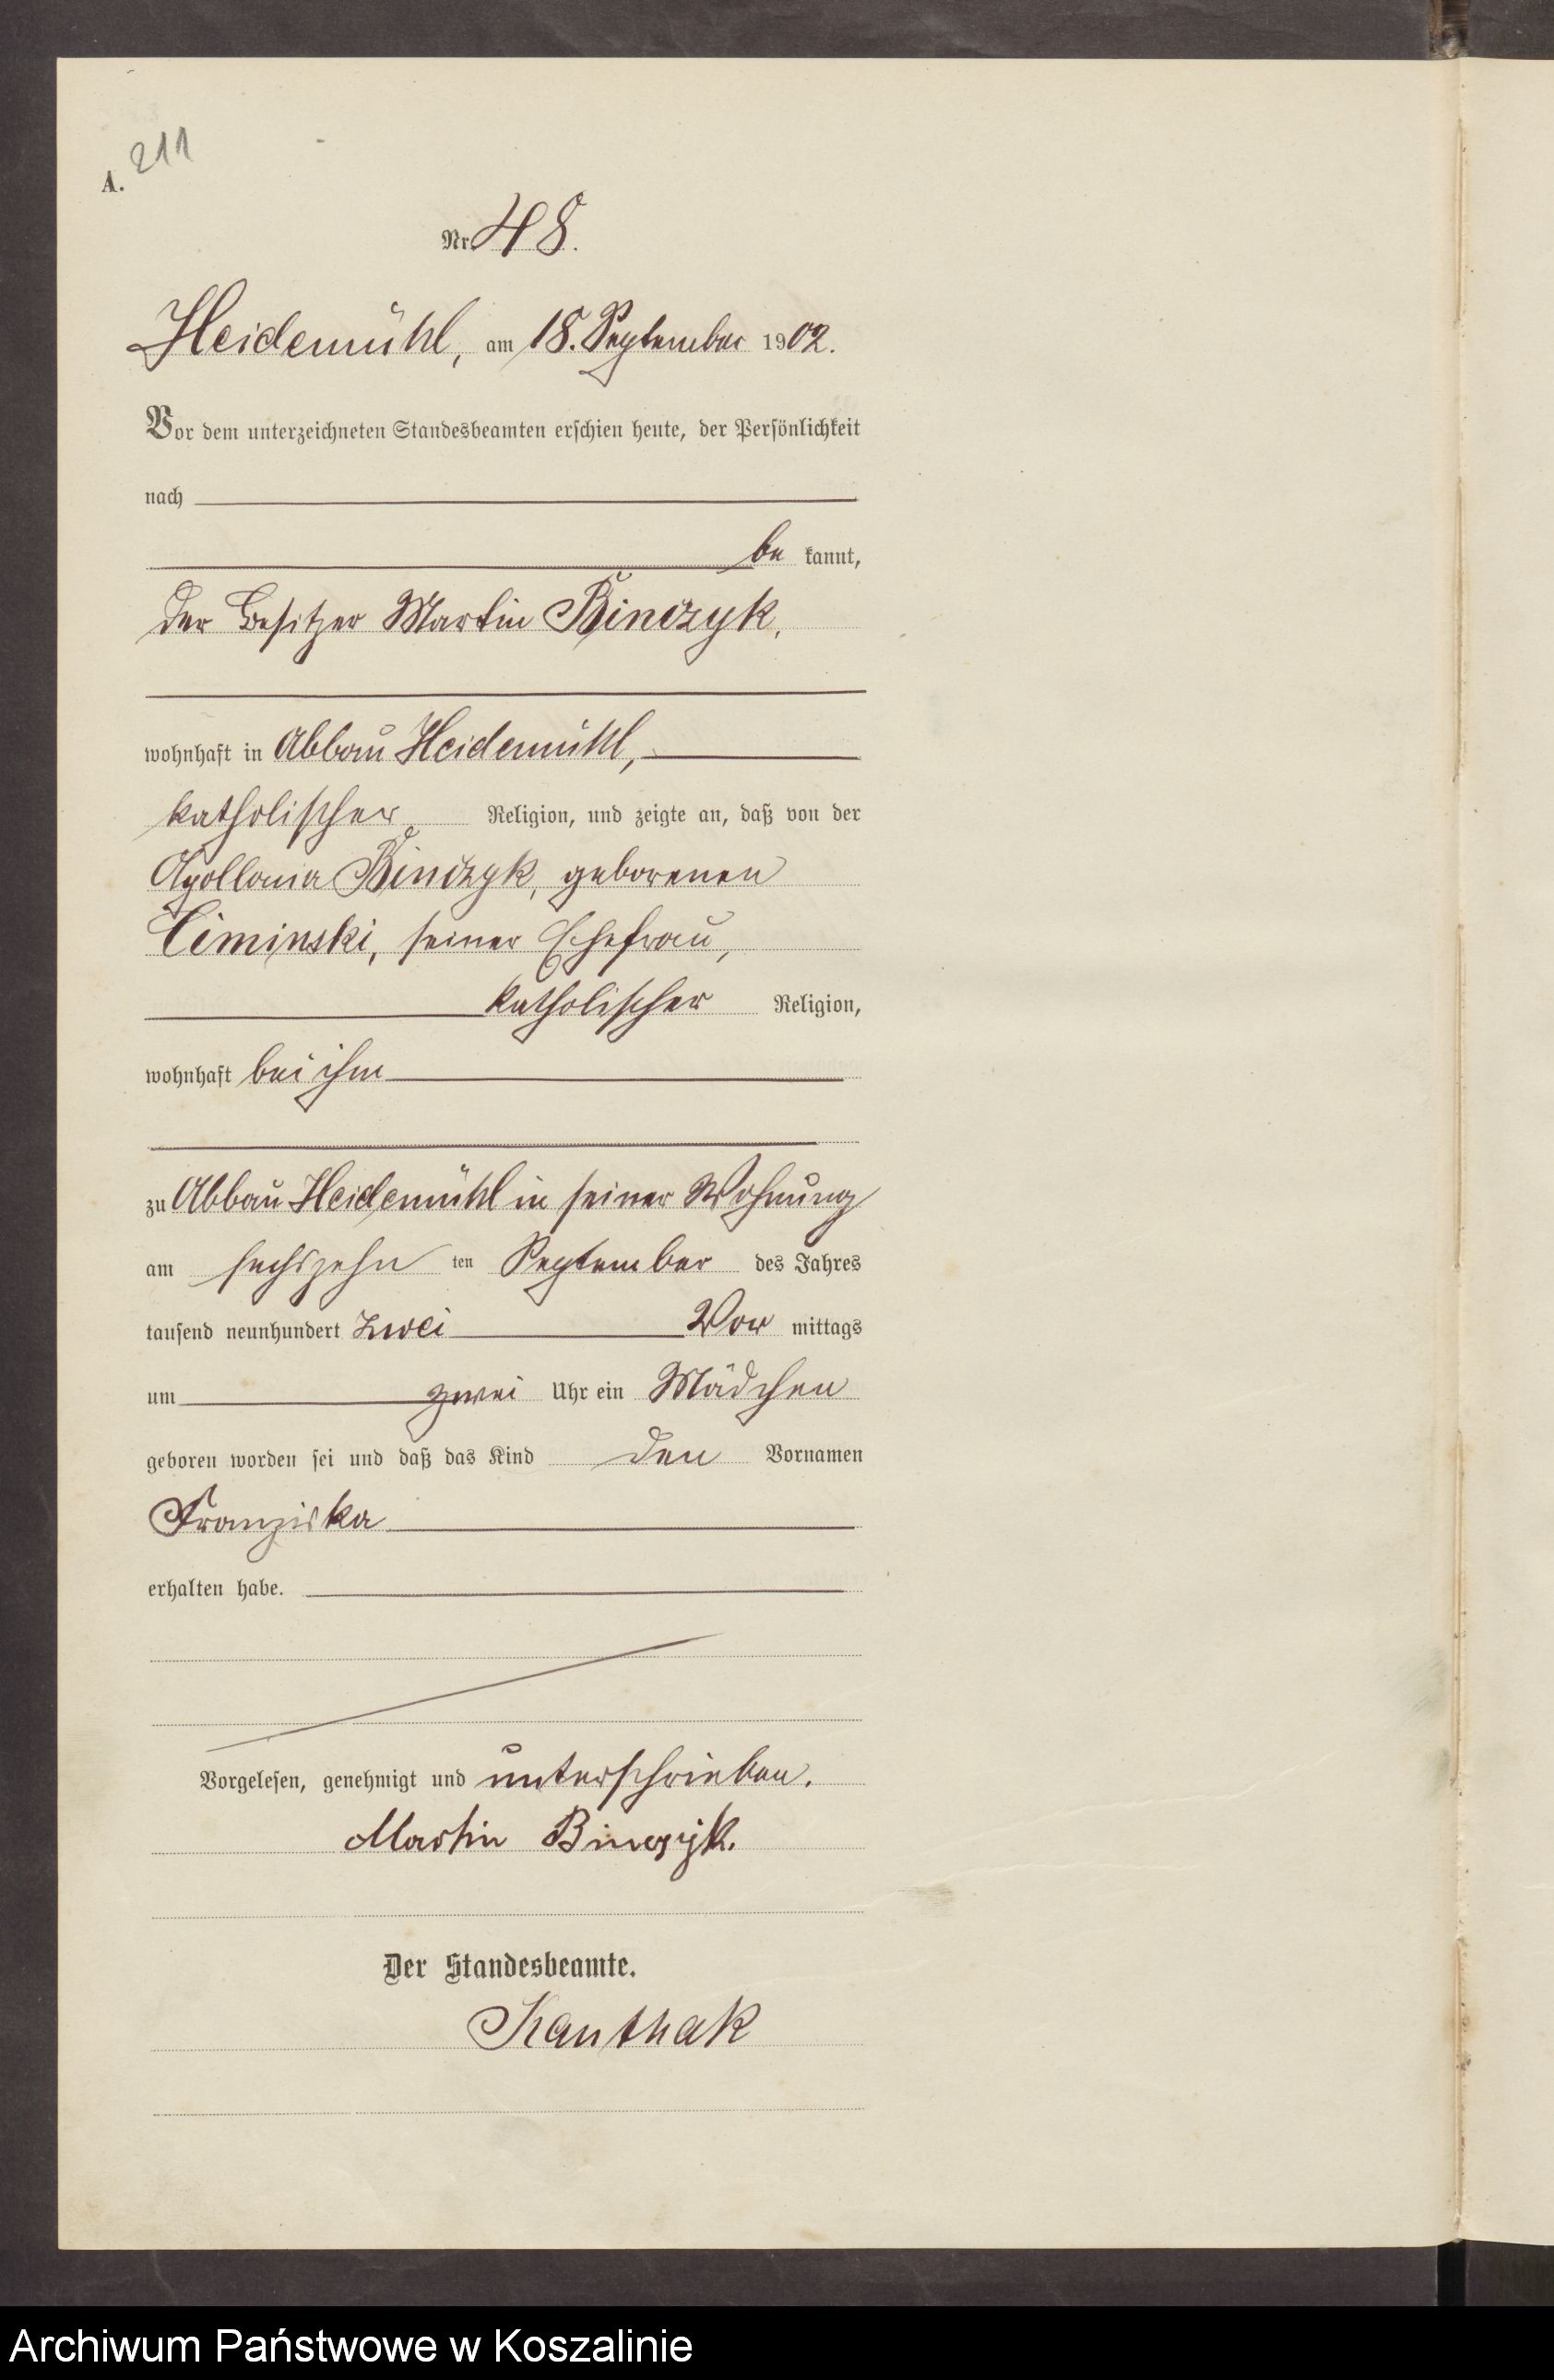 211
A.
Nr. 48.
Heidemühl, am 18. September 1902.
Vor dem unterzeichneten Standesbeamten erschien heute, der Persönlichkeit
nach
be kannt,
der Besitzer Martin Binczyk,
wohnhaft in Abbau Heidemühl,
katholischer Religion, und zeigte an, daß von der
Apollonia Binczyk, geborenen
Ciminski, seiner Ehefrau,
katholischer Religion,
wohnhaft bei ihm
zu Abbau Heidemühl in seiner Wohnung
am sechszehn ten September des Jahres
tausend neunhundert zwei Vor mittags
um zwei Uhr ein Mädchen
geboren worden sei und daß das Kind den Vornamen
Franziska
erhalten habe.
Vorgelesen, genehmigt und unterschrieben.
Martin Binczyk.
Der Standesbeamte.
Kanthak
Archiwum Państwowe w Koszalinie